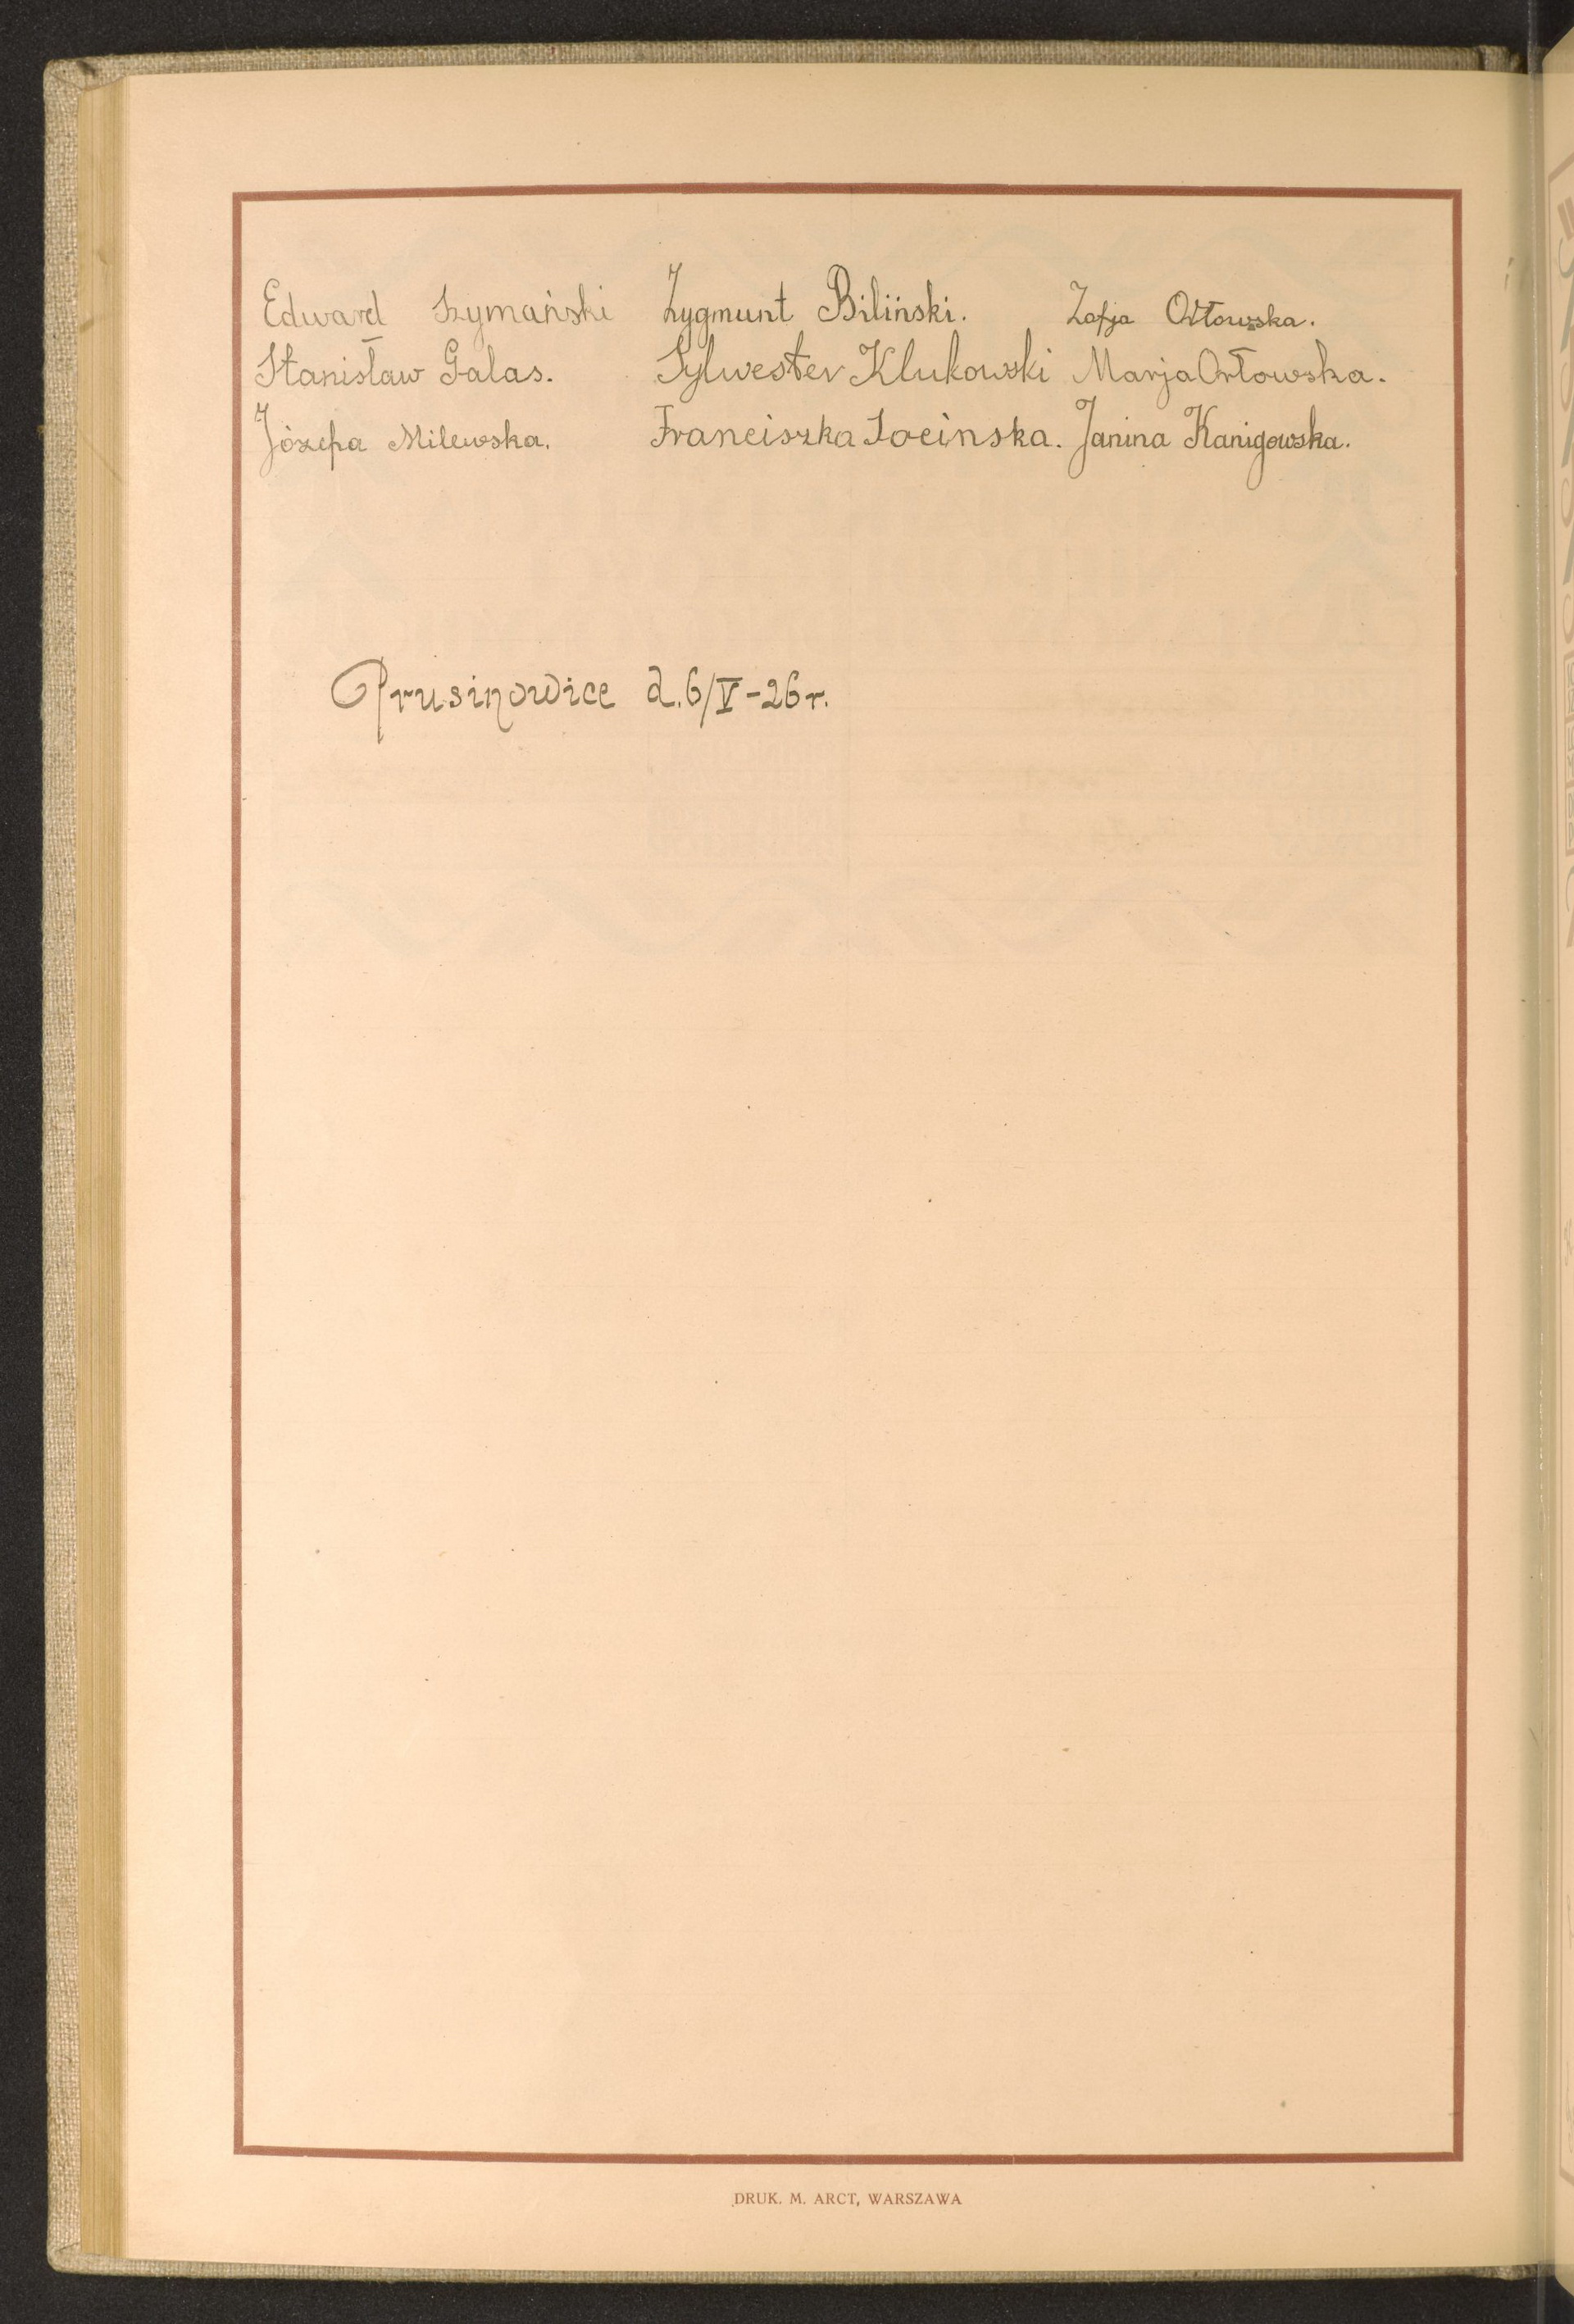 Edward Szymański Zygmunt Biliński. Zofja Orłowska.
Stanisław Galas. Sylwester Klukowski Marja Orłowska.
Józefa Milewska. Franciszka Socinska. Janina Kanigowska.
Prusinowice d. 6/V-26 r.
DRUK. M. ARCT, WARSZAWA